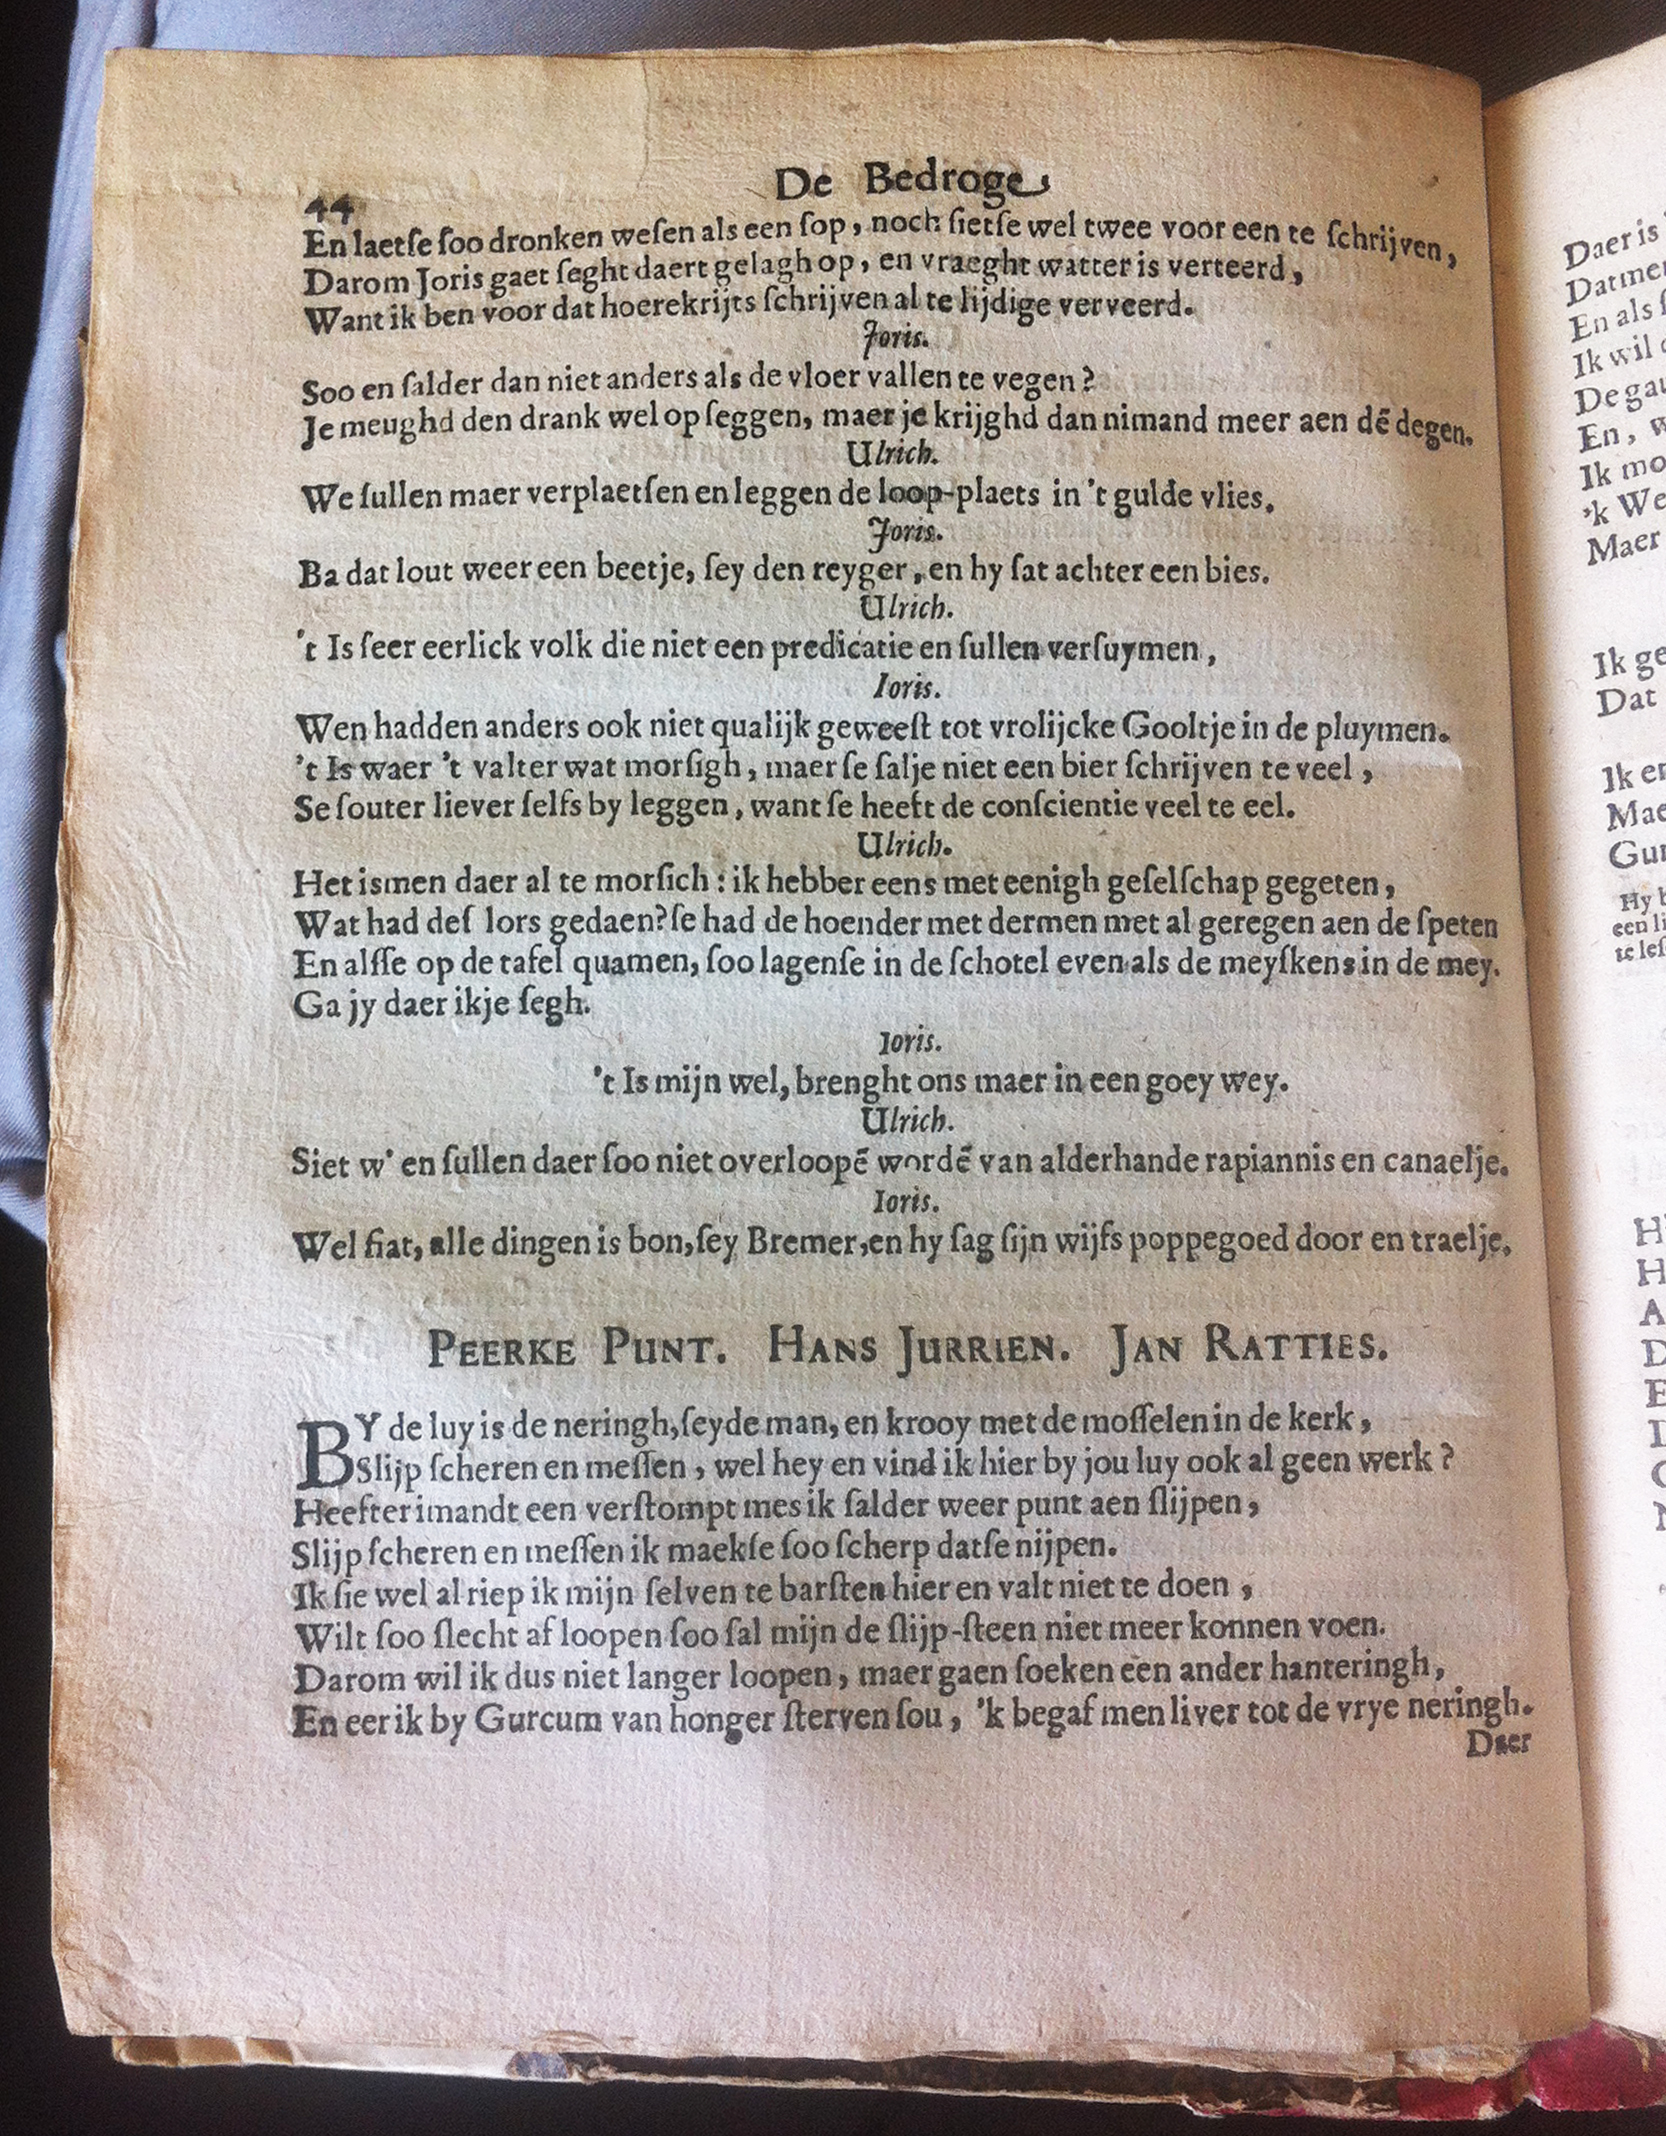 De Bedroge
44
En laetſe ſoo dronken weſen als een ſop, noch ſietſe wel twee voor een te ſchrijven,
Darom Joris gaet ſeght daert gelagh op, en vraeght watter is verteerd,
Want ik ben voor dat hoerekrijts ſchrijven al te lijdige verveerd.
Joris.
Soo en ſalder dan niet anders als de vloer vallen te vegen?
Je meughd den drank wel op ſeggen, maer je krijghd dan nimand meer aen dē degen.
Ulrich.
We ſullen maer verplaetſen en leggen de loop-plaets in 't gulde vlies.
Joris.
Ba dat lout weer een beetje, ſey den reyger, en hy ſat achter een bies.
Ulrich.
't Is ſeer eerlick volk die niet een predicatie en ſullen verſuymen,
Ioris.
Wen hadden anders ook niet qualijk geweeſt tot vrolijcke Gooltje in de pluymen.
't Is waer 't valter wat morſigh, maer ſe ſalje niet een bier ſchrijven te veel,
Se ſouter liever ſelfs by leggen, want ſe heeft de conſcientie veel te eel.
Ulrich.
Het ismen daer al te morſich: ik hebber eens met eenigh geſelſchap gegeten,
Wat had deſ lors gedaen? ſe had de hoender met dermen met al geregen aen de ſpeten
En alſſe op de tafel quamen, ſoo lagenſe in de ſchotel even als de meyſkens in de mey.
Ga jy daer ikje ſegh.
Ioris.
't Is mijn wel, brenght ons maer in een goey wey.
Ulrich.
Siet w' en ſullen daer ſoo niet overloopē wordē van alderhande rapiannis en canaelje.
Ioris.
Wel fiat, alle dingen is bon, ſey Bremer, en hy ſag ſijn wijfs poppegoed door en traelje.
PEERKE PUNT. HANS JURRIEN. JAN RATTIES.
BY de luy is de neringh, ſeyde man, en krooy met de moſſelen in de kerk,
Slijp ſcheren en meſſen, wel hey en vind ik hier by jou luy ook al geen werk?
Heefter imandt een verſtompt mes ik ſalder weer punt aen ſlijpen,
Slijp ſcheren en meſſen ik maekſe ſoo ſcherp datſe nijpen.
Ik ſie wel al riep ik mijn ſelven te barſten hier en valt niet te doen,
Wilt ſoo ſlecht af loopen ſoo ſal mijn de ſlijp-ſteen niet meer konnen voen.
Darom wil ik dus niet langer loopen, maer gaen ſoeken een ander hanteringh,
En eer ik by Gurcum van honger ſterven ſou, 'k begaf men liver tot de vrye neringh.
Daer
Daer is
En als
Ik wil
En,
Ik mo
'k We
Maer
Ik ge
Dat
Ik en
Hy